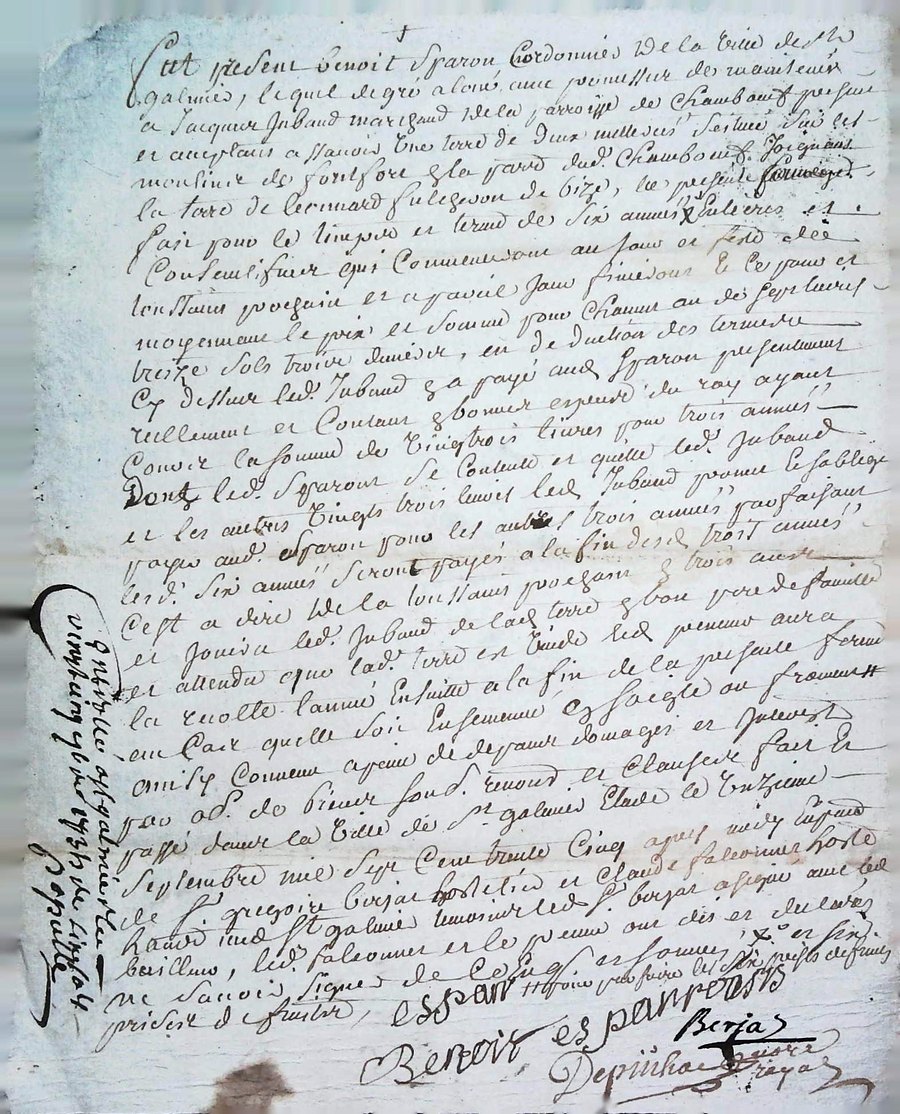 Fut present benoit Sparon Cordonnier de la Ville de St
galmier, lequel de gré a loué avec promesse de maintenir
a Jacques Jubaud marchand de la parroisse de Chambœuf present
et acceptant assavoir Une terre de deux Situé Sur les
moulins de fontfort & la parr. dud. Chambœuf. Joignant
la terre de leonnard de bize, la presente
fait pour le temps et terme de Six années Entieres et
Consecutives qui Commenceront au jour et feste de
toussains prochain et a pareil jour finiront Et Ce pour et
moyennant le prix et Somme pour Chacun an de Sept livres
treize Sols trois deniers, en deduction des termes
Cy dessus led. Jubaud a payé aud. Sparon presentement
reellement et Contant & bonnes especes du roy ayant
Cours la Somme de Vingt trois livres pour trois années
Dont led. Sparon Se Contente et quitte led. Jubaud
et les autres Vingt trois livres led. Jubaud promet Et Soblige
payer aud. Sparon pour les autres trois années parfaisant
lesd. Six années Seront payés a la fin desd. trois années
Cest a dire de la toussains prochain & trois ans
et jouira led. Jubaud de lad. terre & bon pere de famille
et attendu que lad. terre est Vuide led. preneur aura
la recolte lannée Ensuitte a la fin de la presente ferme
en Cas quelle Soit Ensemencé & Soigle ou froment
ainsy Convenu a peine de depans domages et Interest
par obl. de biens Soub. renond. et Clauses fait Et
passé dans la Ville de St galmier Etude le Onzieme
Septembre mil Sept Cent trente Cinq apres midy En presence
de Sr. gregoire berjat hostelier et Claude falconnet hoste
led. falconnet et le preneur ont dis et declarés
ne Sçavoir Signer de Ce Enqs. et Sommés
espar
Benoit esparon
Berjat
Controllé a St galmier le
vingt un 7bre 1735